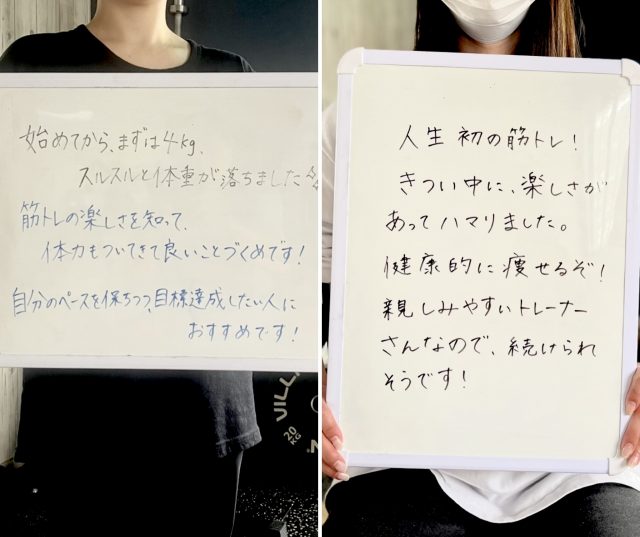 始めてから、まずは4kg、
スルスルと体重が落ちました
筋トレの楽しさを知って、
体力もついてきて良いことづくめです！
自分のペースを保ちつつ、目標達成したい人に
おすすめです！
VILL
20
KG
人生初の筋トレ！
きつい中に、楽しさが
あってハマりました。
健康的に痩せるぞ！
親しみやすいトレーナー
さんなので、続けられ
そうです！